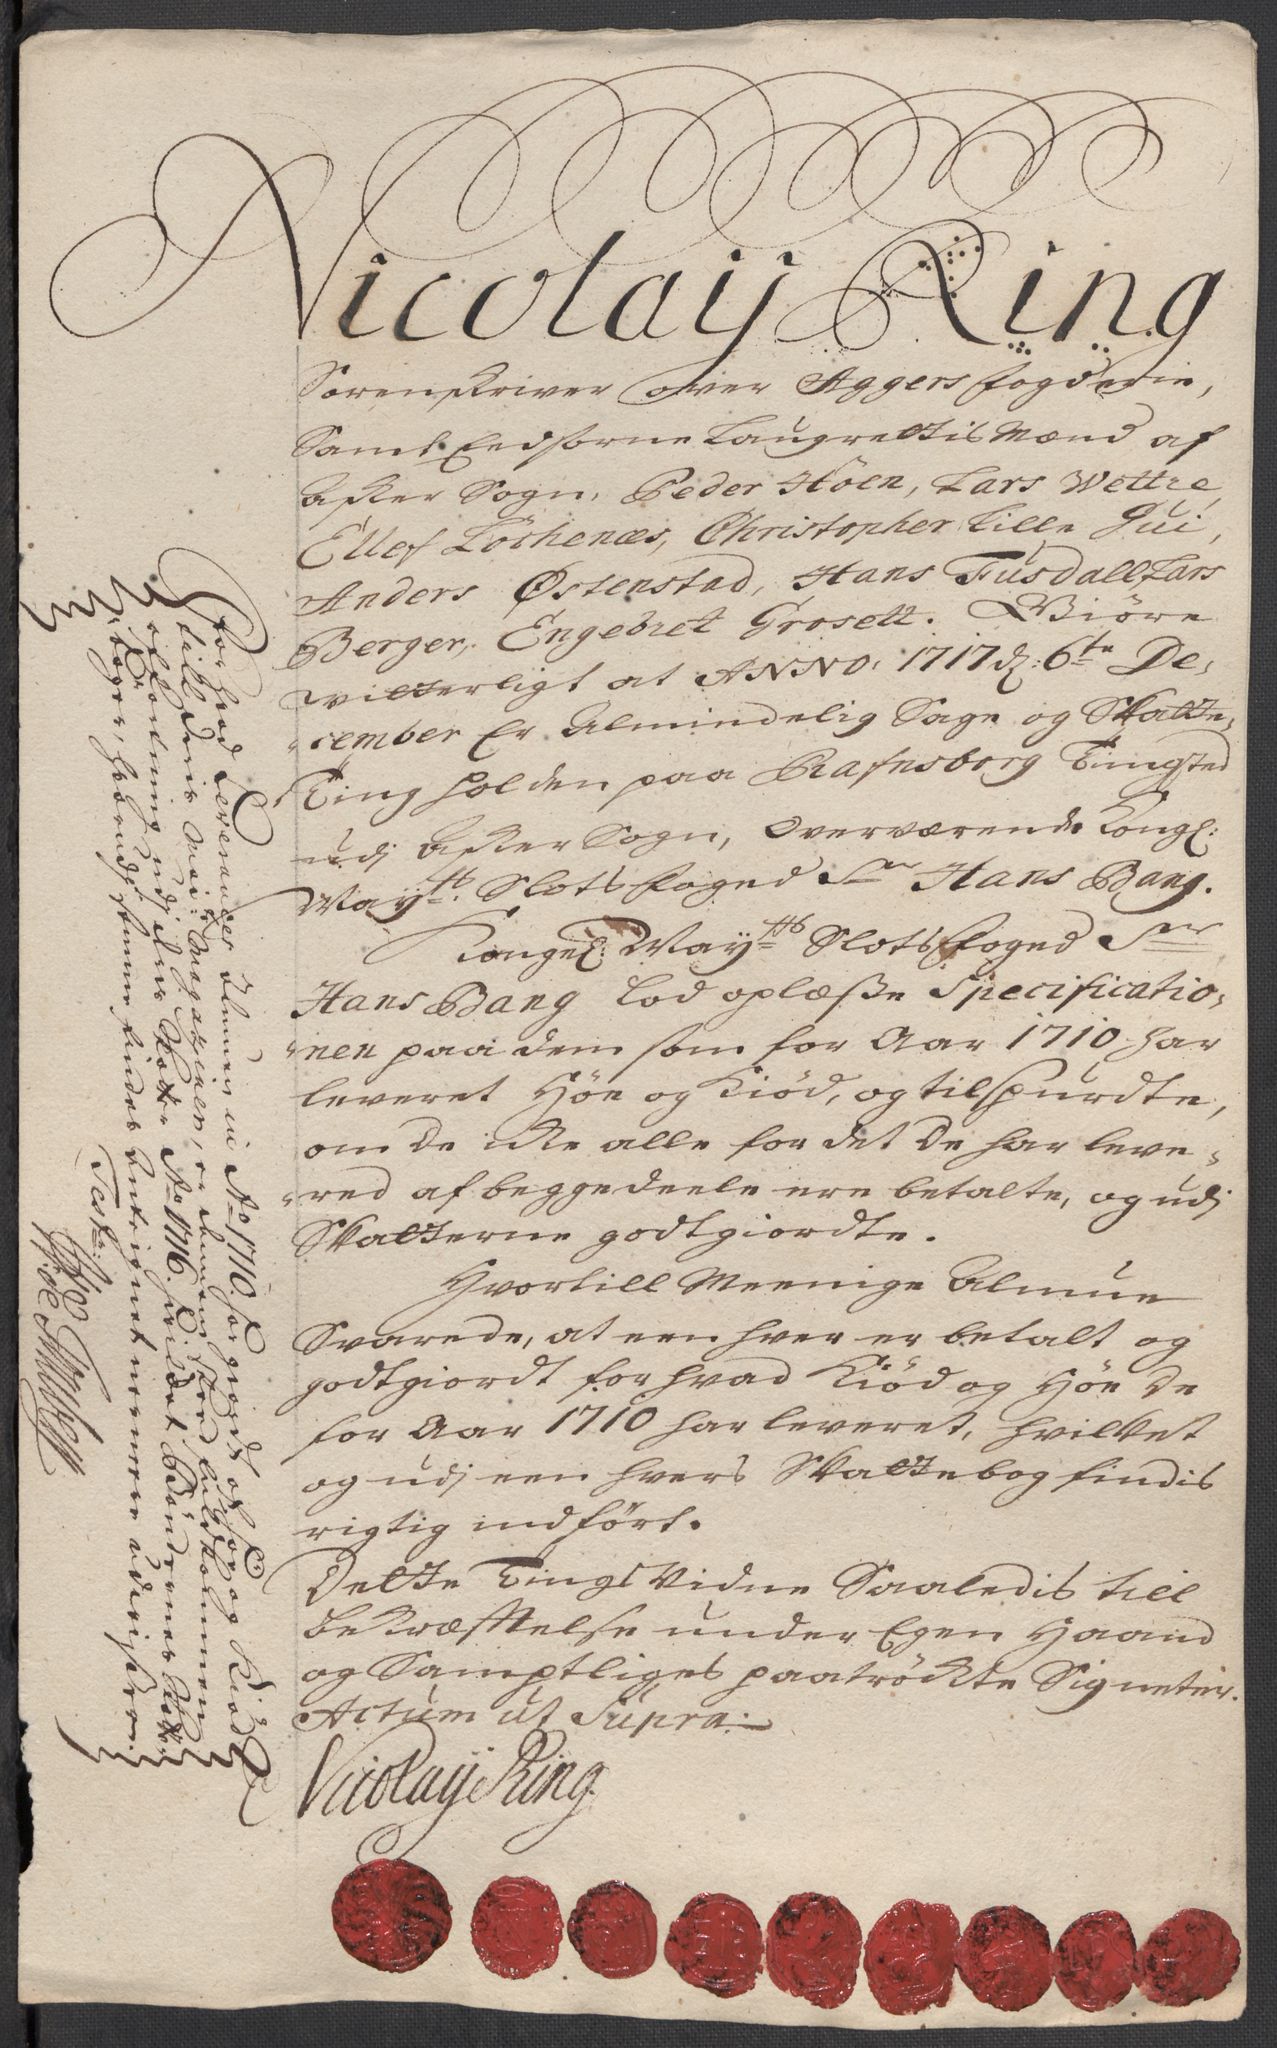 Nicolaij Ring
Sorenskriver over Aggers fogderie,
Samt Eedsorne Laugrettis Mænd af
Asker Sogn, Peder Höen, Lars Wettre,
Ellef Löchenæs, Christopher Lille Gui,
Anders Østenstad, Hans Fusdall, Lars
Berger, Engebret Grosett. Giöre
witterligt at ANNO. 1717 d: 6te De,
cember Er Almindelig Sage og Skatte,
Ting holden paa Rafnsborg Tingsted
udj Asker Sogn, Overværende Kongl:
May.tts Slotsfoged Sr Hans Bang.
Kongel: May.tts Slotsfoged Sr
Hans Bang lod oplæsse Specificatio,
nen paa dem som for Aar 1710 har
leveret Höe og Kiöd, og tilspurdte,
om de icke alle for det de har leve,
red af beggedeele ere betalte, og udj
Skatterne godtgiordte.
Hvortill Meenige Almue
Svarede, at een hver er betalt og
godtgiordt for hvad Kiöd og Höe de
for Aar 1710 har leveret, hvilket
og udj een hvers Skattebog findis
rigtig indfört.
Dette Tings Vidne Saaledis till
bekræfftelse under Egen Haand
og Samptliges paatröckte Signeter.
Actum ut Supra.
Nicolaij Ring.
for hvad Leverancer Almuen in Ao 1710. har giordt af Höe og Kiöd
till deris Maij: Magazien, er
udj Ao 1716.
Test: